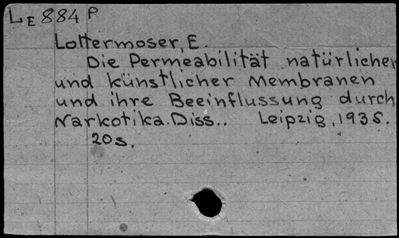 LE 884 P
Lottermoser, E.
Die Permeabilität natürlicher
und künstlicher Membranen
und ihre Beeinflussung durch
Narkotika. Diss.. Leipzig, 1935.
20s.